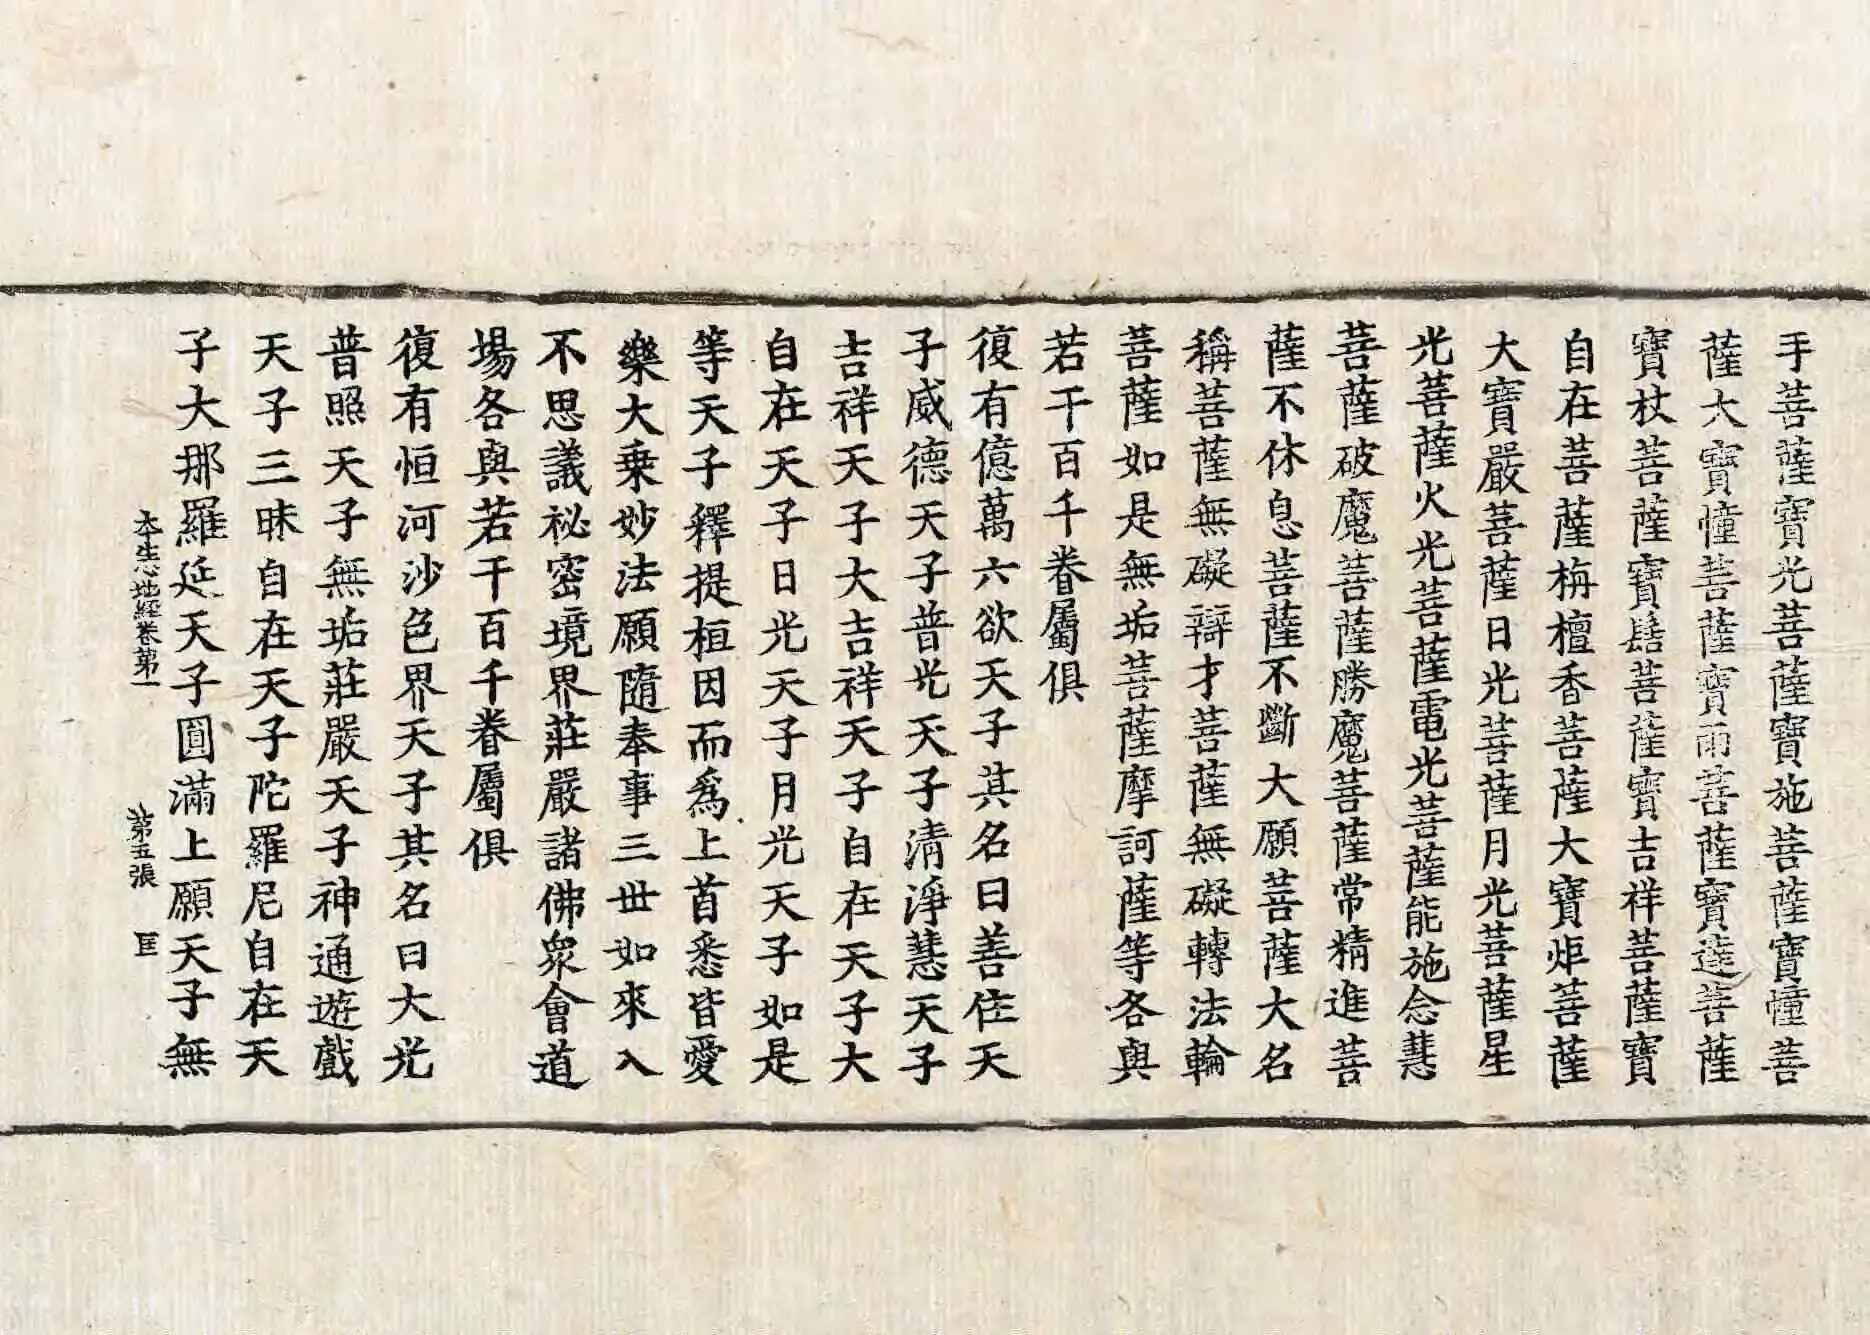 手菩薩寶光菩薩寶施菩薩寶幢菩
薩大寶幢菩薩寶雨菩薩寶達菩薩
寶杖菩薩寶髻菩薩寶吉祥菩薩寶
自在菩薩栴檀香菩薩大寶炬菩薩
大寶嚴菩薩日光菩薩月光菩薩星
光菩薩火光菩薩電光菩薩能施念慧
菩薩破魔菩薩勝魔菩薩常精進菩
薩不休息菩薩不斷大願菩薩大名
稱菩薩無礙辯才菩薩無礙轉法輪
菩薩如是無垢菩薩摩訶薩等各與
若干百千眷屬俱
復有億萬六欲天子其名曰善住天
子威德天子普光天子清淨慧天子
吉祥天子大吉祥天子自在天子大
自在天子日光天子月光天子如是
等天子釋提桓因而為上首悉皆愛
樂大乘妙法願隨奉事三世如來入
不思議祕密境界莊嚴諸佛眾會道
場各與若干百千眷屬俱
復有恒河沙色界天子其名曰大光
普照天子無垢莊嚴天子神通遊戲
天子三昧自在天子陀羅尼自在天
子大那羅延天子圓滿上願天子無
本生心地經卷第一 第五張 匡